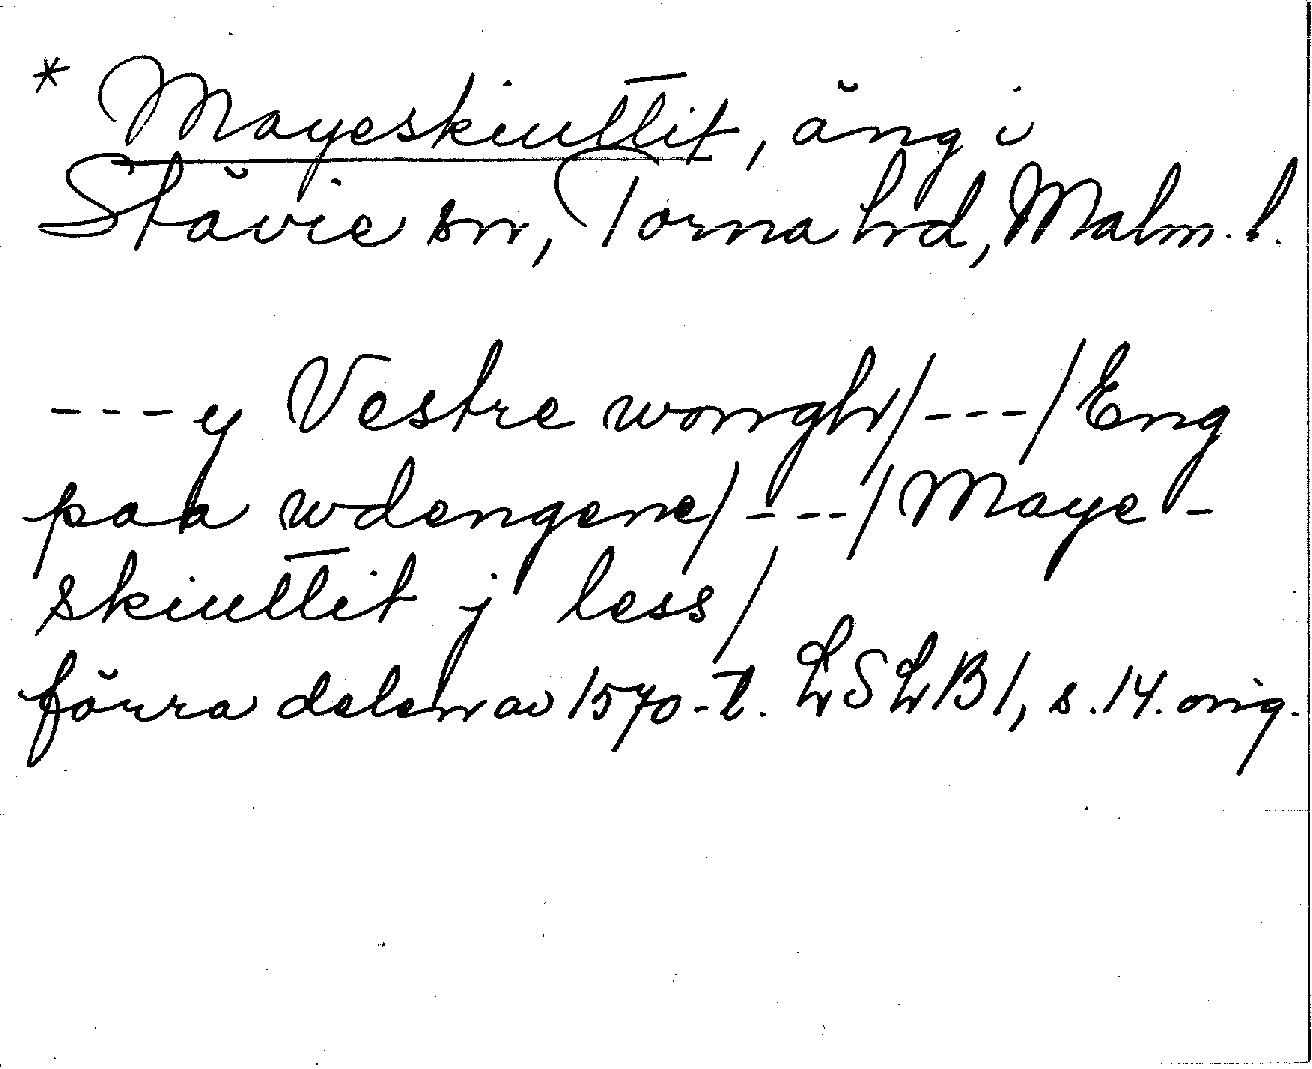 * Mayeskiuttit, äng i
Stävie sn, Torna hd, Malm. l.
---y Vestre wongh/---/Eng
paa wdengene/---/Maye-
skiuttit j less/
förra delen av 1570-t. LSLB1, s.14. orig.